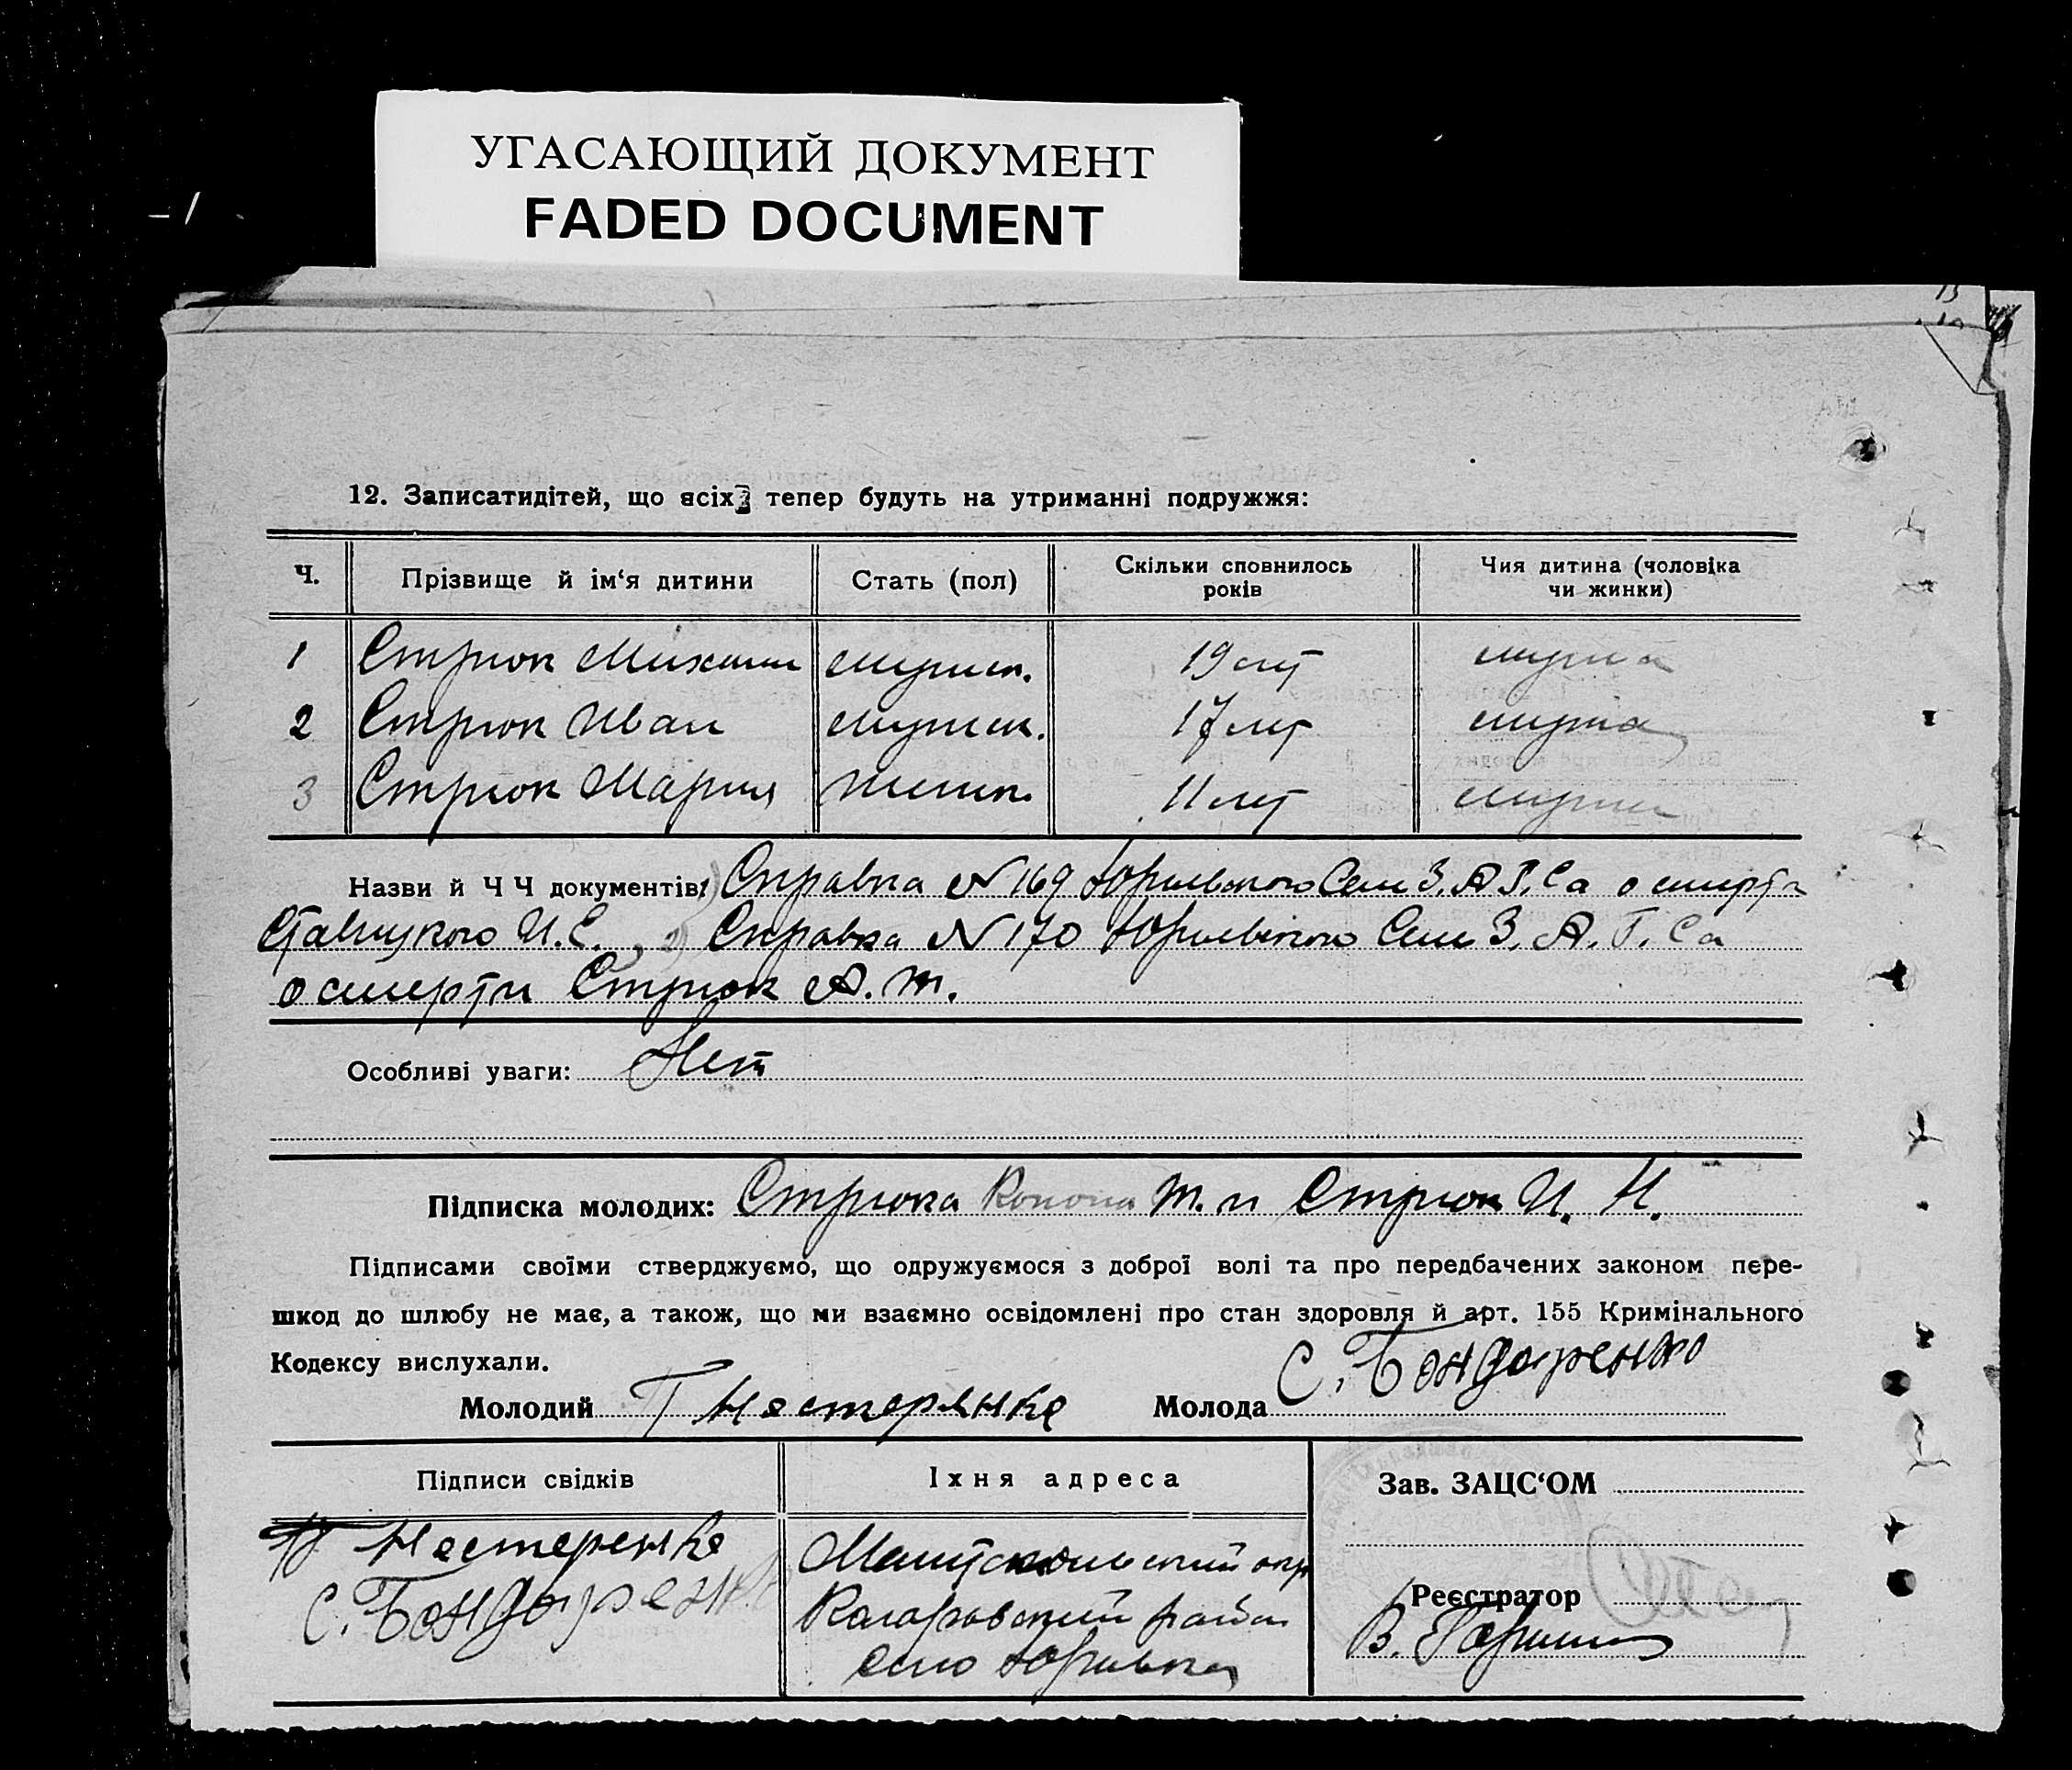 УГАСАЮЩИЙ ДОКУМЕНТ
FADED DOCUMENT
12. Записатидітей, що всіх тепер будуть на утриманні подружжя:
Ч. Прізвище й ім‘я дитини Стать (пол) Скільки сповнилось років Чия дитина (чоловіка чи жинки)
1 Стрюк Михаил мужск. 19 лет мужа
2 Стрюк Иван мужск. 17 лет мужа
3 Стрюк Мария женск. 11 лет мужа
Назви й Ч Ч документів: Справка N 169 Юрьевского Сел З.А.Г.Са о смерти
Ставицкого И.Е., 2) Справка N 170 Юрьевского Сел З.А.Г.Са
о смерти Стрюк А. Т.
Особливі уваги: Нет
Підписка молодих: Стрюка Конона Т. и Стрюк И. Н.
Підписами своїми стверджуємо, що одружуємося з доброї волі та про передбачених законом пере-
шкод до шлюбу не має, а також, що ми взаємно освідомлені про стан здоровля й арт. 155 Кримінального
Кодексу вислухали.
Молодий Нестеренко Молода С. Бондаренко
Підписи свідків Їхня адреса Зав. ЗАЦС‘ОМ
Нестеренко
С. Бондаренко
окр
район
село Юрьевка
Реєстратор
В.